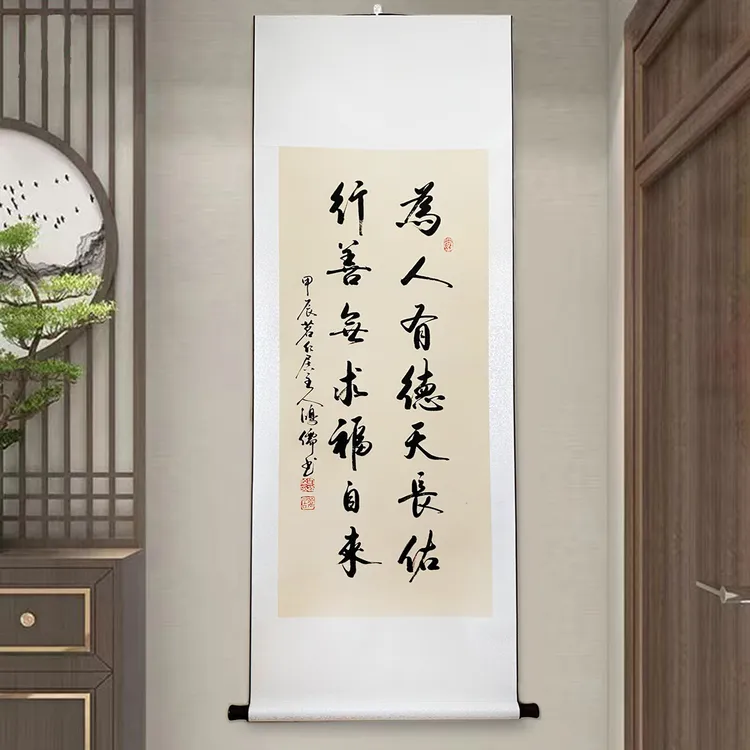 為人有德天長佑
行善無求福自來
甲辰茗仁居主人鴻儒书